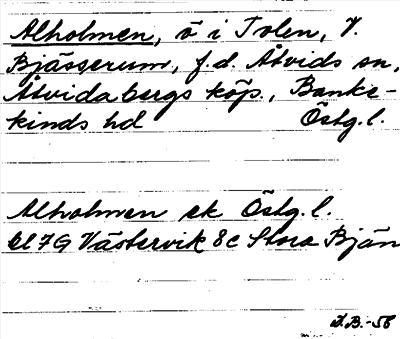 Alholmen, ö i Tolen, V.
Bjässerum, f.d. Åtvids sn,
Åtvidabergs köp., Banke-
kinds hd Östg.l.
Alholmen ek Östg.l.
bl 7G Västervik 8c Stora Bjän
-58